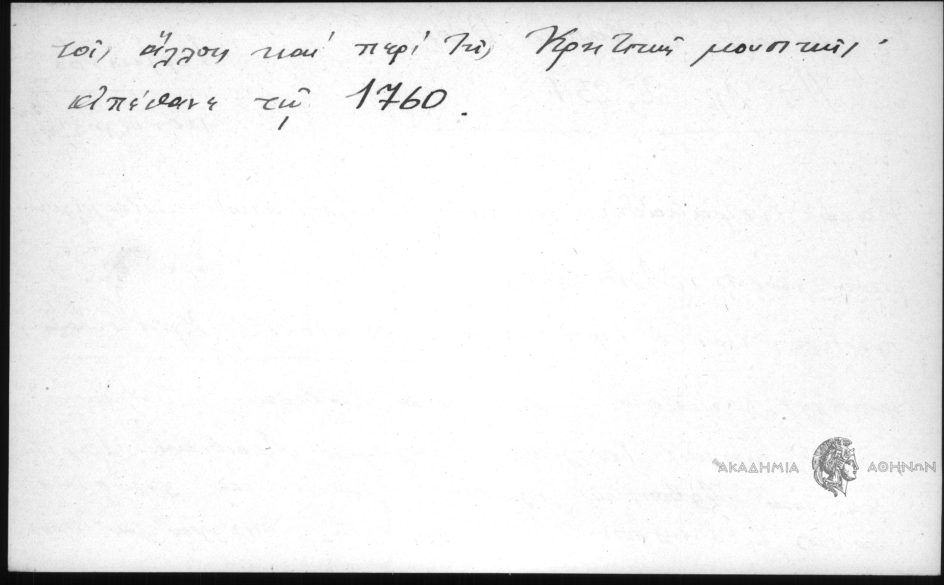 τοῖς ἄλλοις καὶ περὶ τῆς Κρητικῆς μουσικῆς·
ἀπέθανε τῷ 1760.
ἈΚΑΔΗΜΙΑ ΑΘΗΝΩΝ